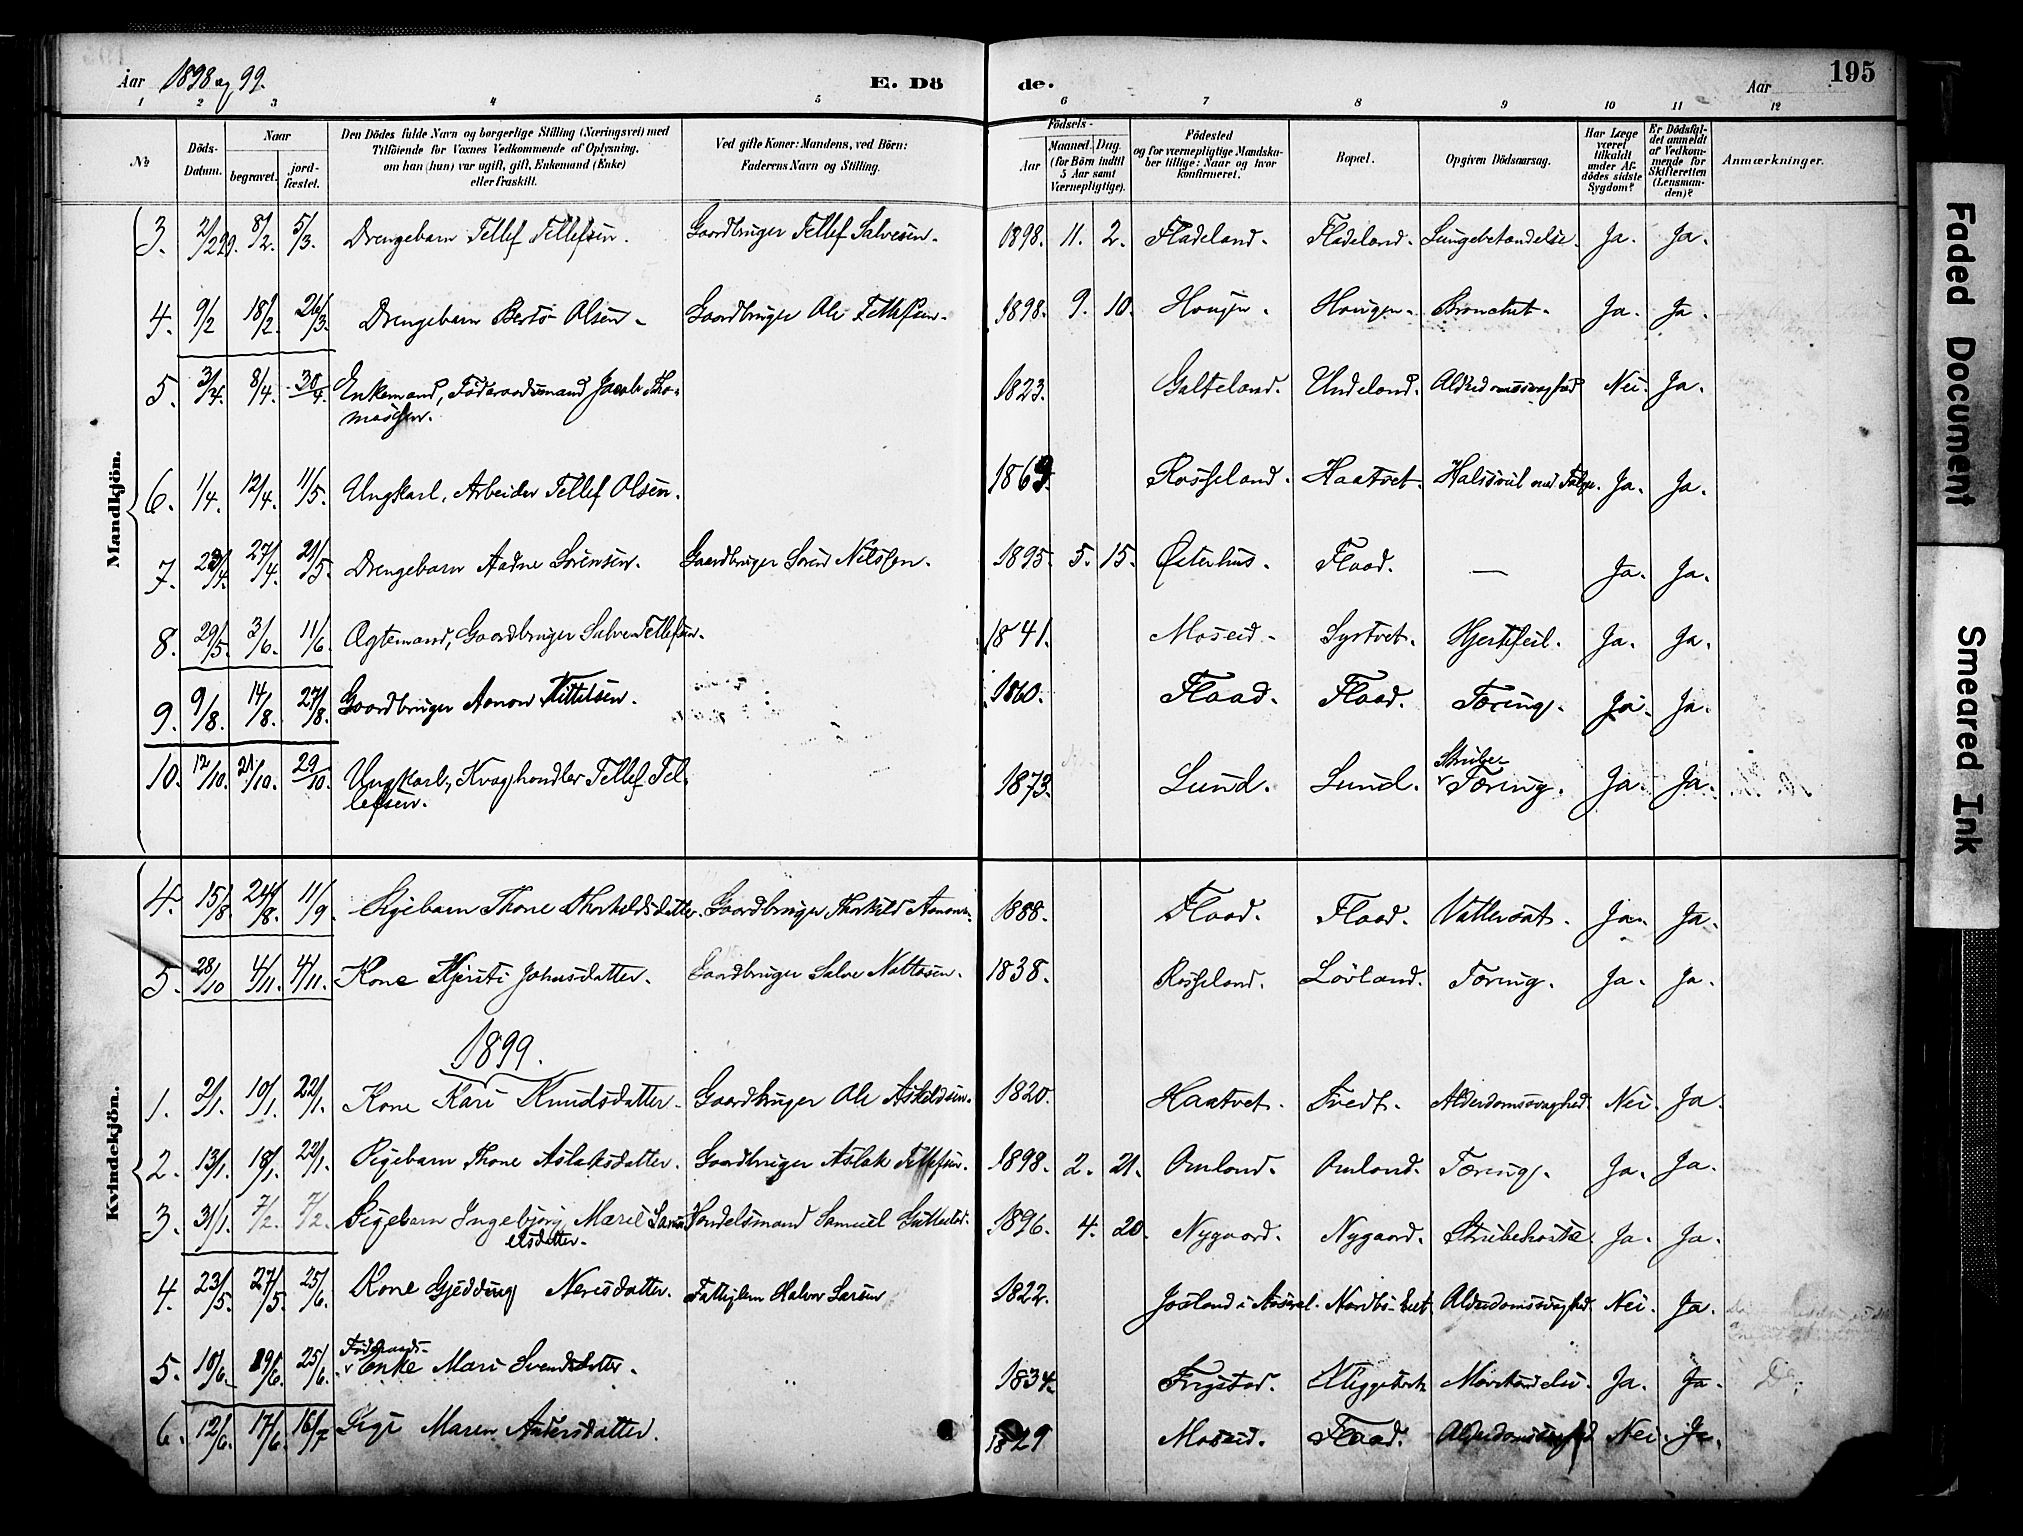 195
Aar 1898 og 99. E. Dö de. Aar
1 2 3 4 5 6 7 8 9 10 11 12
No
Döds-Datum.
Naar
begravet.
jord-fæstet.
Den Dödes fulde Navn og borgerlige Stilling (Næringsvei) med
Tilföiende for Voxnes Vedkommende af Oplysning,
om han (hun) var ugift, gift, Enkemand (Enke)
eller fraskilt.
Ved gifte Koner: Mandens, ved Börn:
Faderens Navn og Stilling.
Födsels-
Aar
Maaned. Dag.
(for Börn indtil
5 Aar samt
Værnepligtige).
Födested
og for værnepligtige Mandska-
ber tillige: Naar og hvor
konfirmeret.
Bopæl.
Opgiven Dödsaarsag.
Har Læge
været
tilkaldt
under Af-
dödes sidste
Sygdom?
Er Dödsfal-
det anmeldt
af Vedkom-
mende for
Skifteretten
(Lensman-
den)?
Anmærkninger.
Mandkjön.
3. 8/2. 5/3. Drengebarn Tellef Tellefsen. Gaardbruger Tellef Salvesen. 1898. 11. 2. Fladeland. Fladeland. Lungebetændelse. Ja. Ja.
4. 9/2 18/2. 26/3. Drengebarn Olsen. Gaardbruger Ole Tellefsen. 1898. 9. 10. Hougen. Hougen. Bronchit. Ja. Ja.
5. 3/4. 8/4. 30/4. Enkemand, Föderaadsmand Jacob Tho-
massen. 1823. Galteland. Undeland. Alderdomssvaghed Nei. Ja.
6. 1/4. 12/4. 11/5. Ungkarl, Arbeider Tellef Olsen. 1869. Rosseland. Haatvet. Halsonde med Ja. Ja.
7. 27/4. 21/5. Drengebarn Aadne Sörensen. Gaardbruger Sören Nilssen. 1895. 5. 15. Österhus. Flaad. — Ja. Ja.
8. 29/5. 3/6. 11/6. Ægtemand, Gaardbruger Salve Tellefsen. 1841. Moseid. Syrtvet. Hjertefeil. Ja. Ja.
9. 9/8. 14/8. 27/8. Gaardbruger Aanon Kittelsen. 1860. Flaad. Flaad. Tæring. Ja. Ja.
10. 12/10. 21/10. 29/10. Ungkarl, Kvæghandler Tellef Tel-
lefsen. 1873. Lund. Lund. Strube
Tæring. Ja. Ja.
Kvindekjön.
4. 15/8. 24/8. 11/9. Pigebarn Thone Thorkildsdatter. Gaardbruger Thorkild Aanonsen. 1888. Flaad. Flaad. Vattersot. Ja. Ja.
5. 28/10 4/11. 4/11. Kone Kjersti Johnsdatter. Gaardbruger Salve Nottosen. 1838. Rosseland. Lövland. Tæring. Ja. Ja.
1899.
1. 2/1. 10/1. 22/1. Kone Kari Knudsdatter. Gaardbruger Ole Askildsen. 1820. Haatvet. Tvedt. Alderdomssvaghed. Nei. Ja.
2. 13/1. 18/1. 22/1. Pigebarn Thone Aslaksdatter. Gaardbruger Aslak Tellefsen. 1898. 2. 21. Omland. Omland. Tæring. Ja. Ja.
3. 31/1. 7/2. 7/2. Pigebarn Ingebjörg Marie Samu-
elsdatter. Handelsmand Samuel 1896. 4. 20. Nygaard. Nygaard. Strubehoste. Ja. Ja.
4. 23/5. 27/5. 25/6. Kone Gjedding Nerisdatter. Fattiglem Halvor Larsen 1822. Alderdomssvaghed. Nei. Ja.
5. 10/6. 19/6. 25/6. Föderaads-
Enke Mari Svendsdatter. „ 1834. Frigstad. Ja. Ja. Do.
6. 12/6. 17/6. 16/7 Pige Maren Andersdatter. 1829 Moseid. Flaad. Alderdomssvaghed Nei. Ja.
Faded Document
Smeared Ink